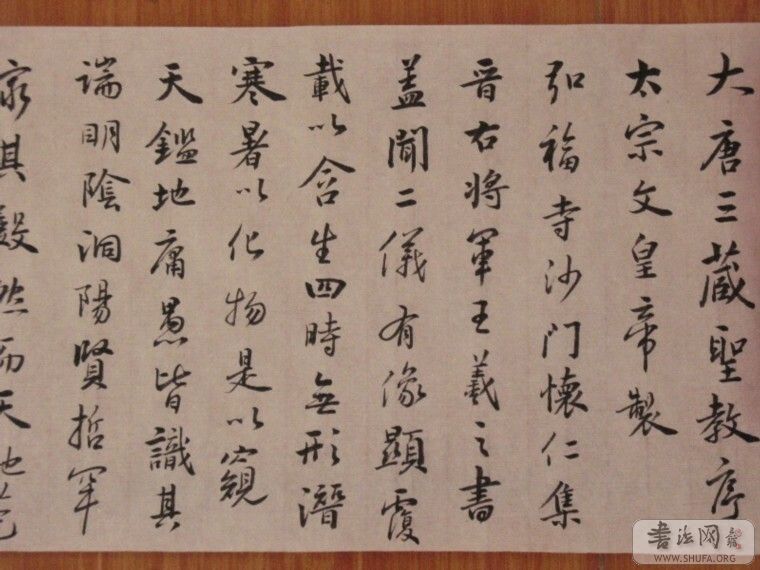 大唐三藏聖教序
太宗文皇帝製
弘福寺沙门懷仁集
晉右將軍王羲之書
盖聞二儀有像顯覆
載以含生四時無形潛
寒暑以化物是以窺
天鑑地庸愚皆識其
端明陰洞陽賢哲罕
窮其數然而天地苞
書法网
WWW.SHUFA.ORG